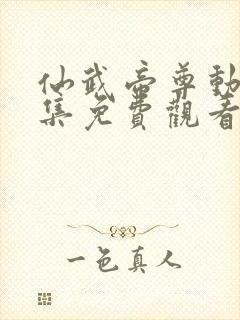 仙武帝尊動
集免費觀看
一色真人